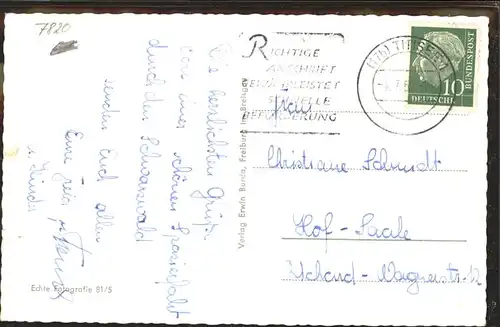 7820
Die herzlichsten Grüße
von einer schönen Spazierfahrt
durch den Schwarzwald
senden Euch allen
Eure
u. Kinder
Echte Fotografie 81/5
Verlag Erwin Burda, Freiburg im Breisgau
RICHTIGE
ANSCHRIFT
GEWÄHRLEISTET
SCHNELLE
BEFÖRDERUNG
(17b) TITISEE
DEUTSCHE
BUNDESPOST
10
Frau
Christiane Schmidt
Hof-Saale